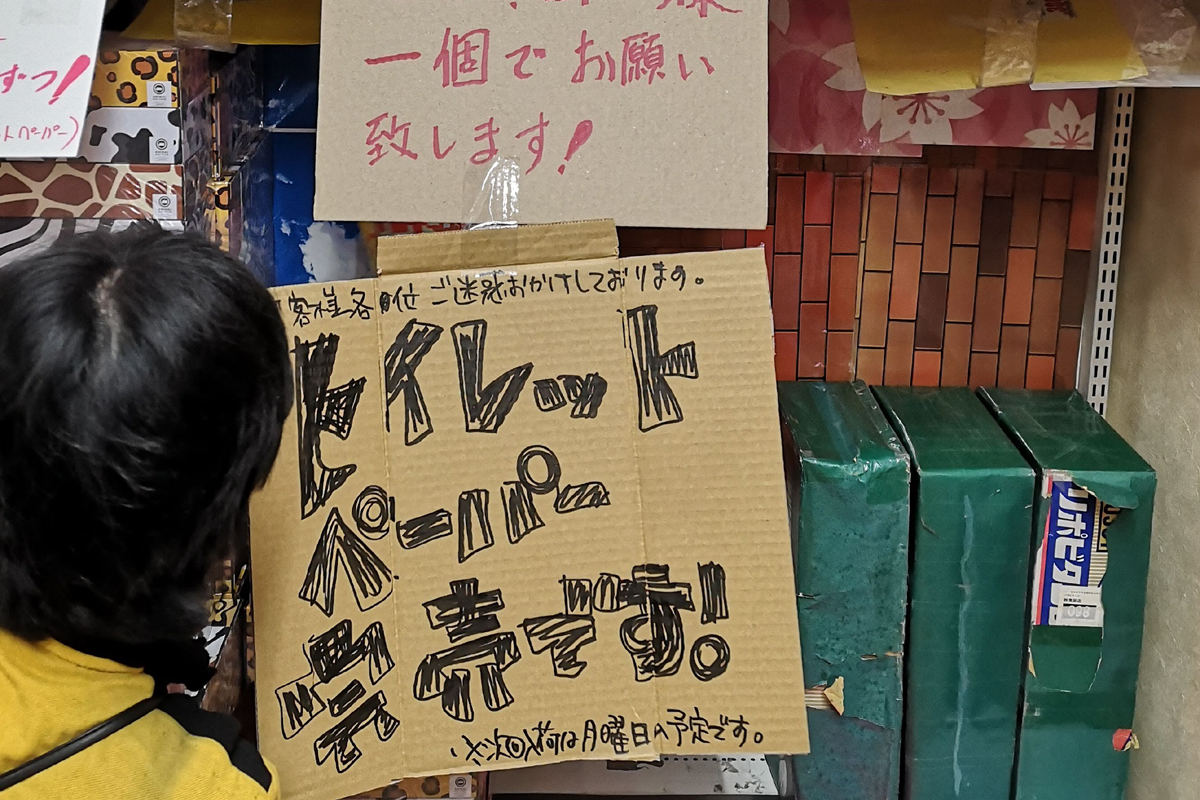 ずつ!
トペーパー)
一個でお願い
致します!
客様各位 ご迷惑おかけしております。
トイレット
ペーパー
完売です!
※次回入荷は月曜日の予定です。
リポビタ